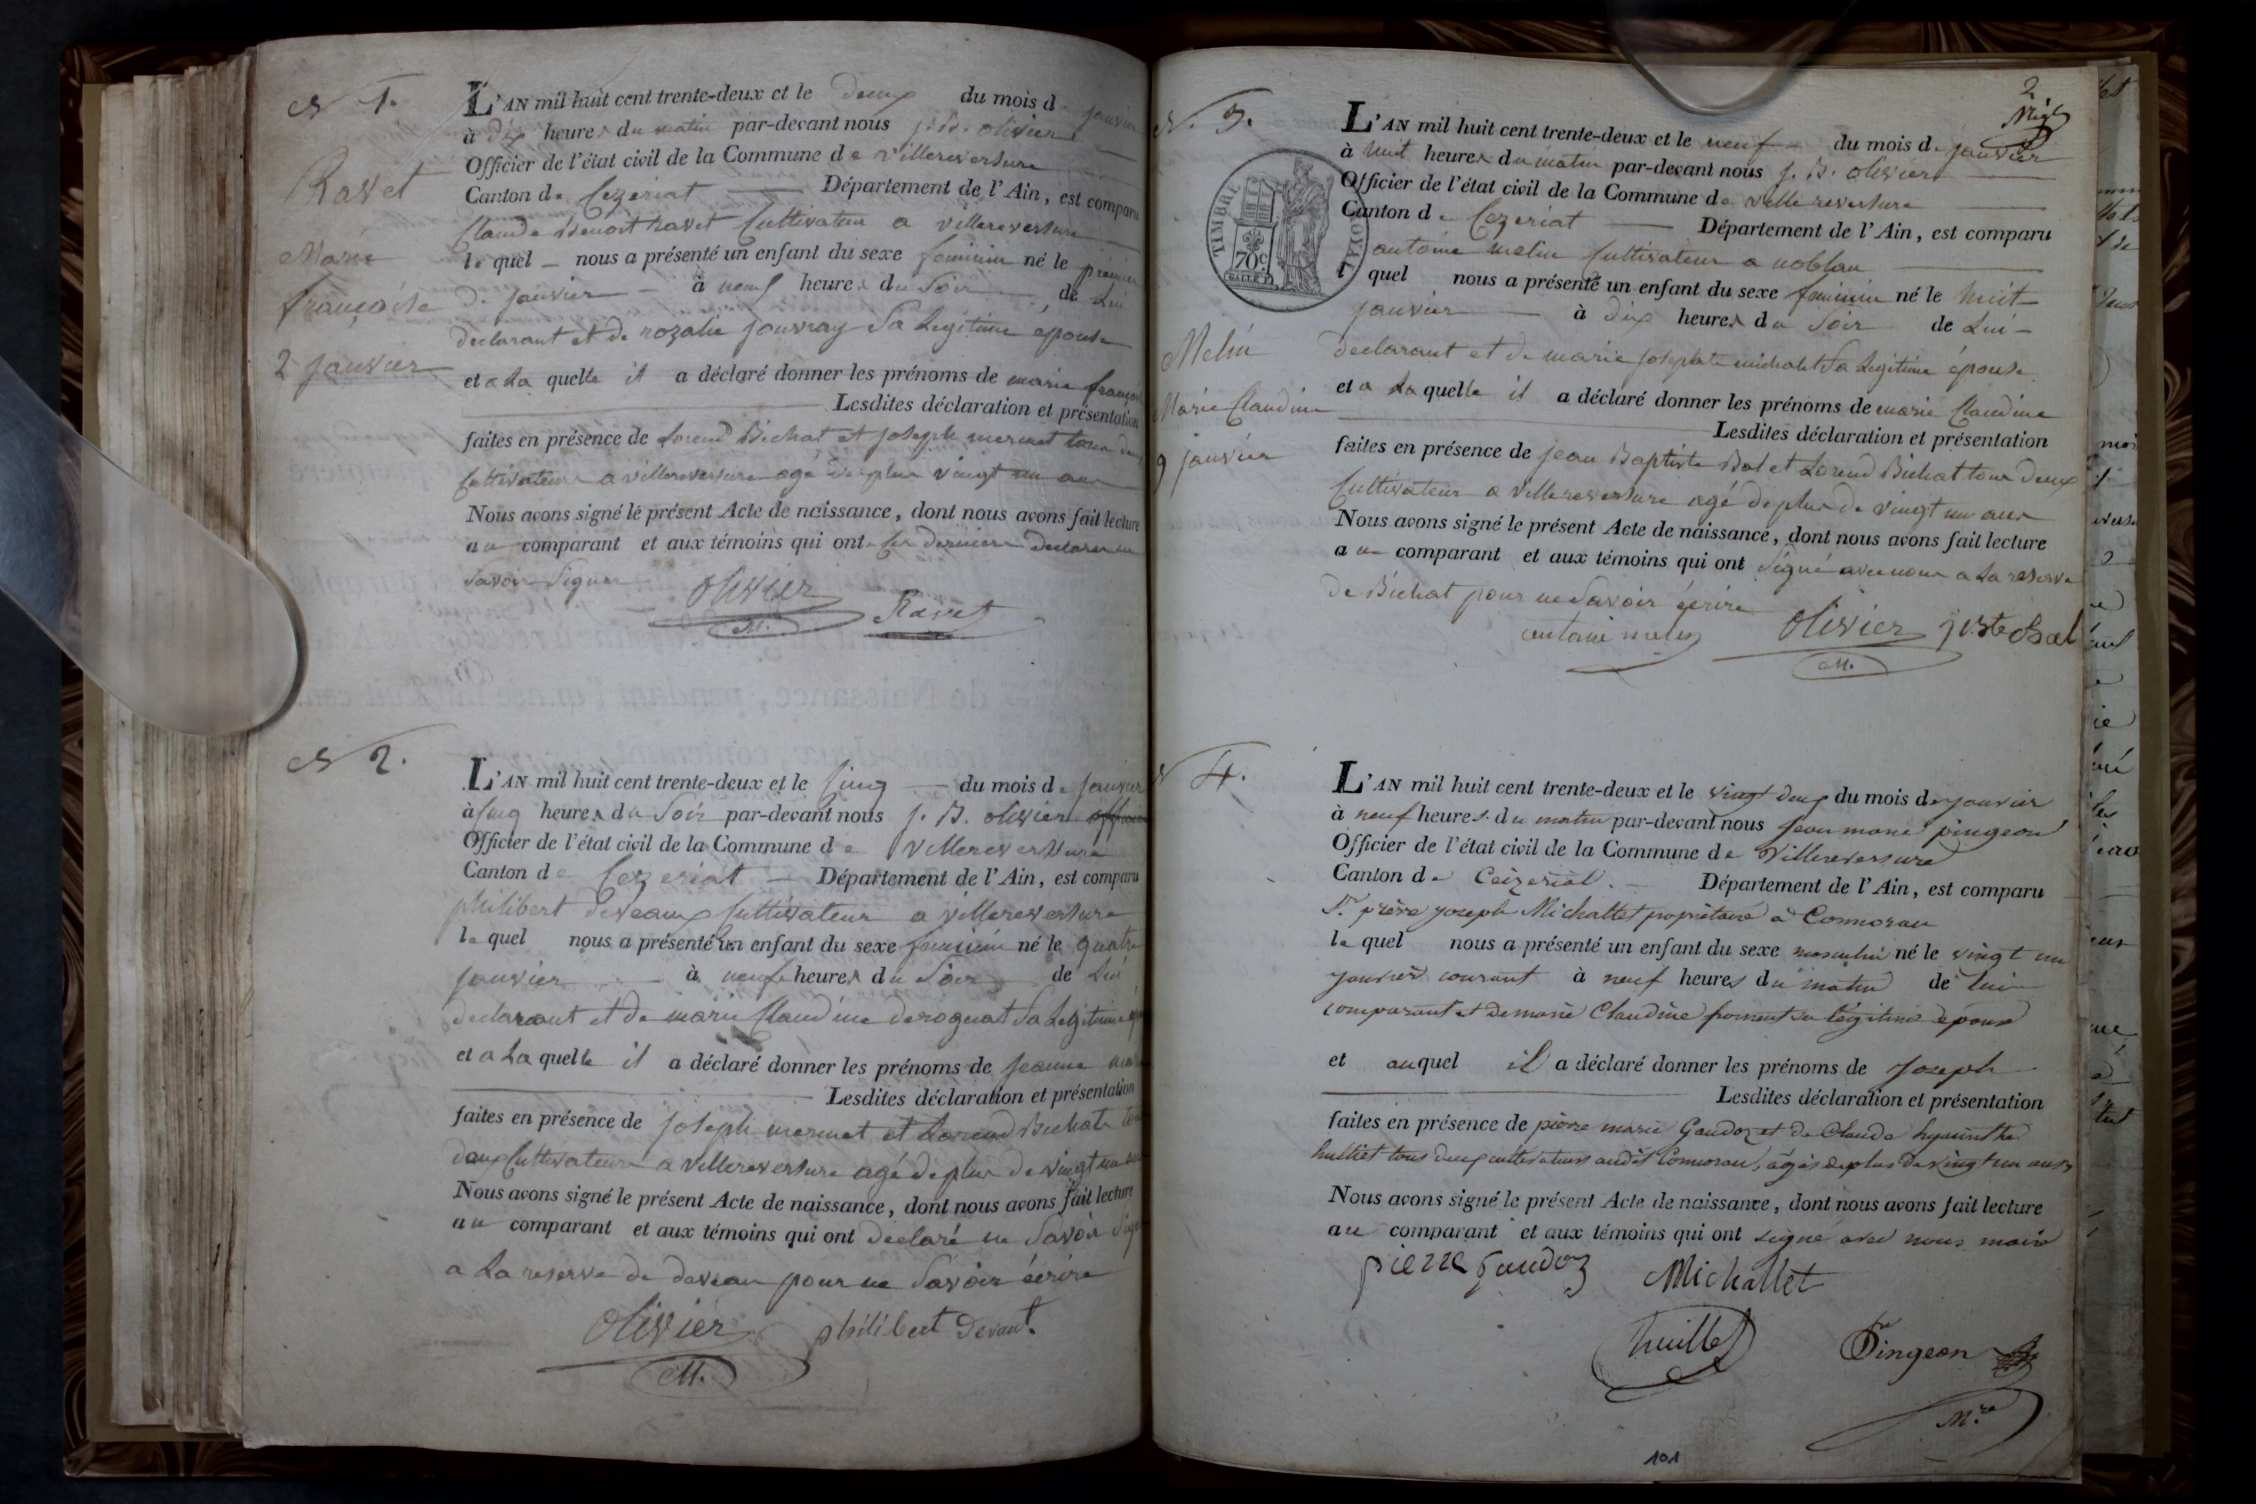 N 1.
Ravet
Marie
françoise
2 janvier
L'AN mil huit cent trente-deux et le deux du mois de janvier
à dix heures du matin par-devant nous j. B. olivier
Officier de l'état civil de la Commune de villereversure
Canton de Cezeriat Département de l'Ain, est comparu
Claude Benoit ravet Cultivateur a villereversure
le quel nous a présenté un enfant du sexe feminin né le premier
de janvier à neuf heures du Soir de Lui
declarant et de rozalie jouvray Sa Legitime épouse
et a La quelle il a déclaré donner les prénoms de marie françoi
Lesdites déclaration et présentation
faites en présence de Lorend Bichat et joseph mermet tous deux
Cultivateurs a villereversure agé de plus vingt un ans
Nous avons signé le présent Acte de naissance, dont nous avons fait lecture
au comparant et aux témoins qui ont
Savoir Signer
Olivier Ravet
M.
N 2.
L'AN mil huit cent trente-deux et le Cinq du mois de janvier
à Cinq heures du Soir par-devant nous j. B. olivier
Officier de l'état civil de la Commune de Villereversure
Canton de Cezeriat Département de l'Ain, est comparu
philibert deveaux Cultivateur a villereversure
le quel nous a présenté un enfant du sexe feminin né le quatre
janvier à neuf heures du Soir de Lui
declarant et de marie Claudine deroguat Sa Legitime
et a La quelle il a déclaré donner les prénoms de jeanne
Lesdites déclaration et présentation
faites en présence de joseph mermet et Lorend Bichat tous
deux Cultivateurs a villereversure agé de plus de vingt un ans
Nous avons signé le présent Acte de naissance, dont nous avons fait lecture
au comparant et aux témoins qui ont declaré ne Savoir Signer
a La reserve de deveau pour ne Savoir écrire
Olivier philibert Devaut.
M.
2
N. 3.
TIMBRE ROYAL
70c
Melin
Marie Claudine
9 janvier
L'AN mil huit cent trente-deux et le neuf du mois de janvier
à huit heures du matin par-devant nous j. B. olivier
Officier de l'état civil de la Commune de villereversure
Canton de Cezeriat Département de l'Ain, est comparu
antoine melin Cultivateur a noblan
l quel nous a présenté un enfant du sexe feminin né le huit
janvier à dix heures du Soir de Lui
declarant et de marie josephte michalet Sa Legitime épouse
et a La quelle il a déclaré donner les prénoms de marie Claudine
Lesdites déclaration et présentation
faites en présence de jean Baptiste Bal et Lorend Bichat tous deux
Cultivateur a villereversure agé de plus de vingt un ans
Nous avons signé le présent Acte de naissance, dont nous avons fait lecture
au comparant et aux témoins qui ont Signé avec nous a La reserve
de Bichat pour ne Savoir écrire
antoine melin Olivier j Bte Bal
M.
N 4.
L'AN mil huit cent trente-deux et le vingt deux du mois de janvier
à neuf heures du matin par-devant nous jean marie pingeon
Officier de l'état civil de la Commune de Villereversure
Canton de Ceizeriat. Département de l'Ain, est comparu
Sr. pierre joseph Michallet propriétaire à Conmorau
le quel nous a présenté un enfant du sexe masculin né le vingt un
janvier courant à neuf heures du matin de lui
comparant et de marie Claudine froment sa légitime épouse
et auquel il a déclaré donner les prénoms de joseph
Lesdites déclaration et présentation
faites en présence de pierre marie Gaudoz et de Claude hyacinthe
huilliet tous deux cultivateurs audit Conmorau, âgés de plus de vingt un ans
Nous avons signé le présent Acte de naissance, dont nous avons fait lecture
au comparant et aux témoins qui ont signé avec nous maire
pierre gaudoz Michallet
Pingeon
M.re
101